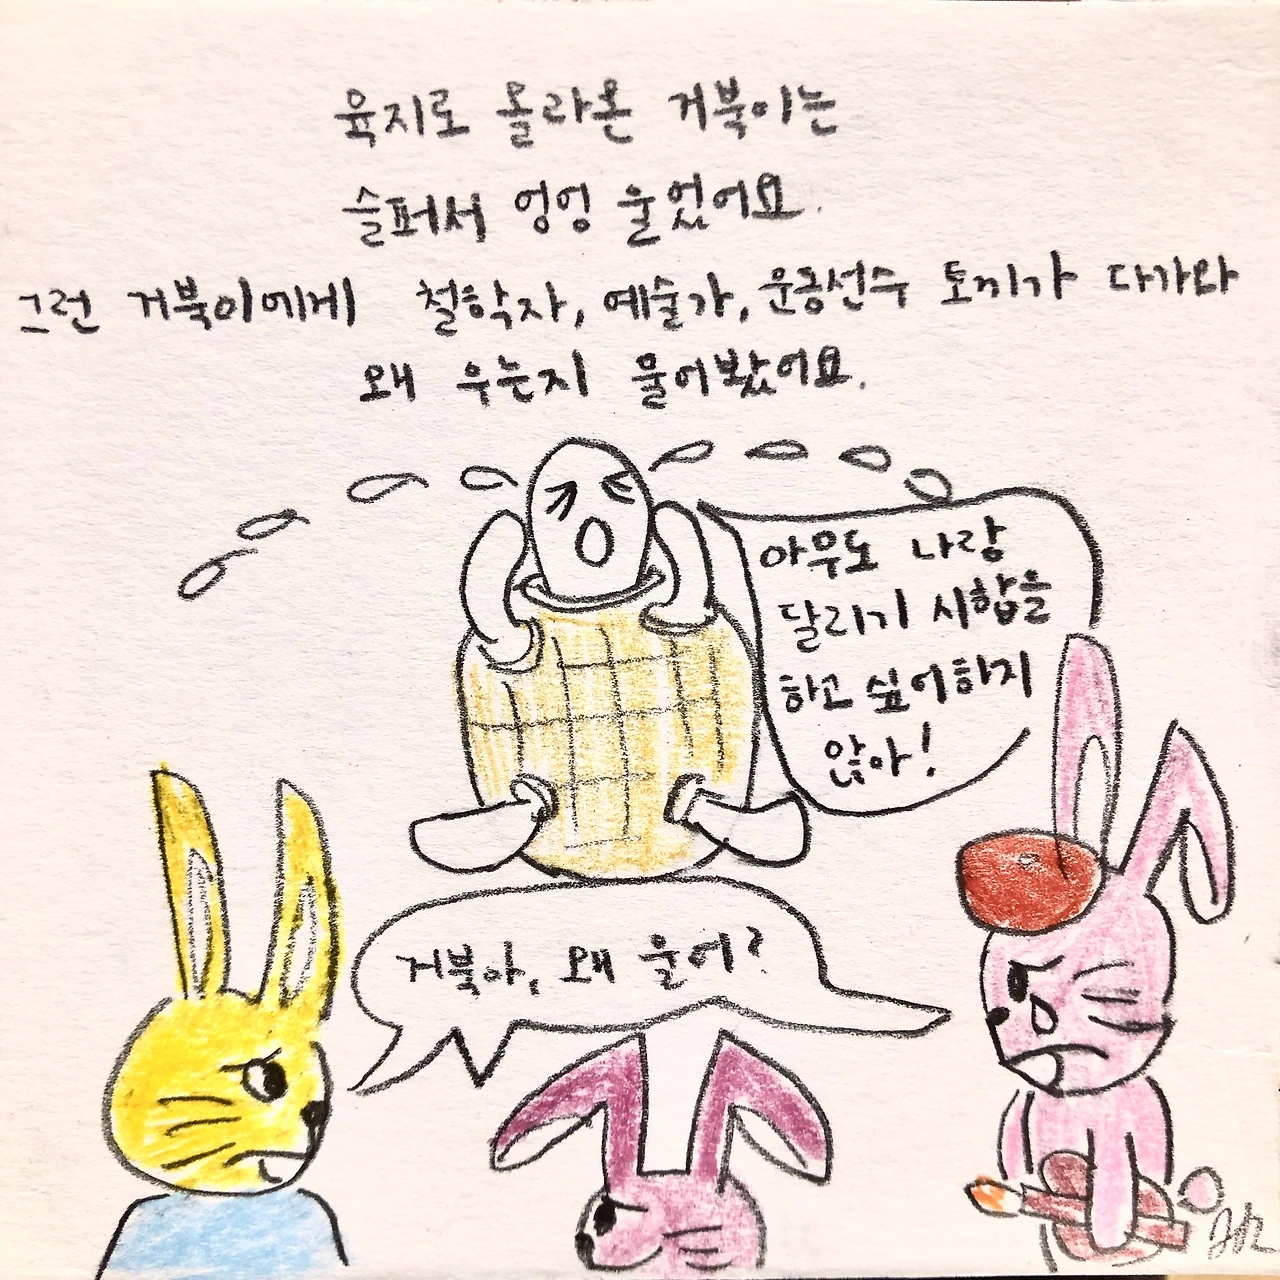 육지로 올라온 거북이는
슬퍼서 엉엉 울었어요.
그런 거북이에게 철학자, 예술가, 운동선수 토끼가 다가와
왜 우는지 물어봤어요.
아무도 나랑
달리기 시합을
하고 싶어하지
않아!
거북아, 왜 울어?